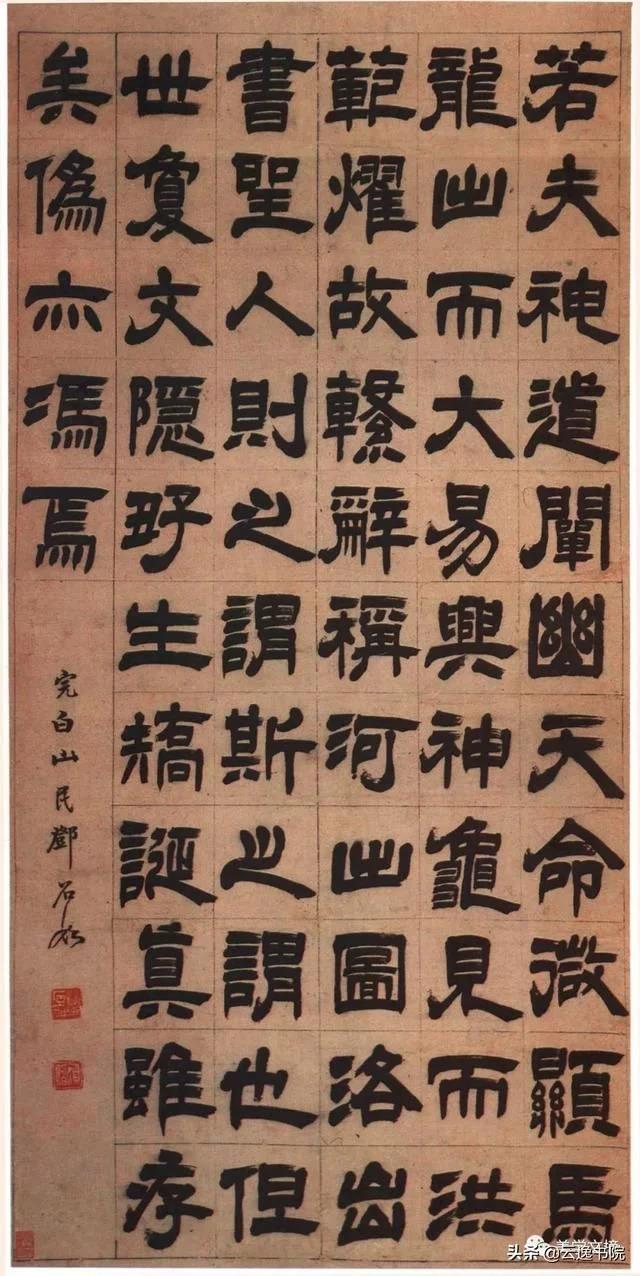 若夫神道闡幽天命微顯馬
龍出而大易興神龜見而洪
範燿故繫辭稱河出圖洛出
書聖人則之謂斯之謂也但
世夐文隱好生矯誕真雖存
矣偽亦馮焉
完白山民鄧石如
美学文摘
头条@云逸书院